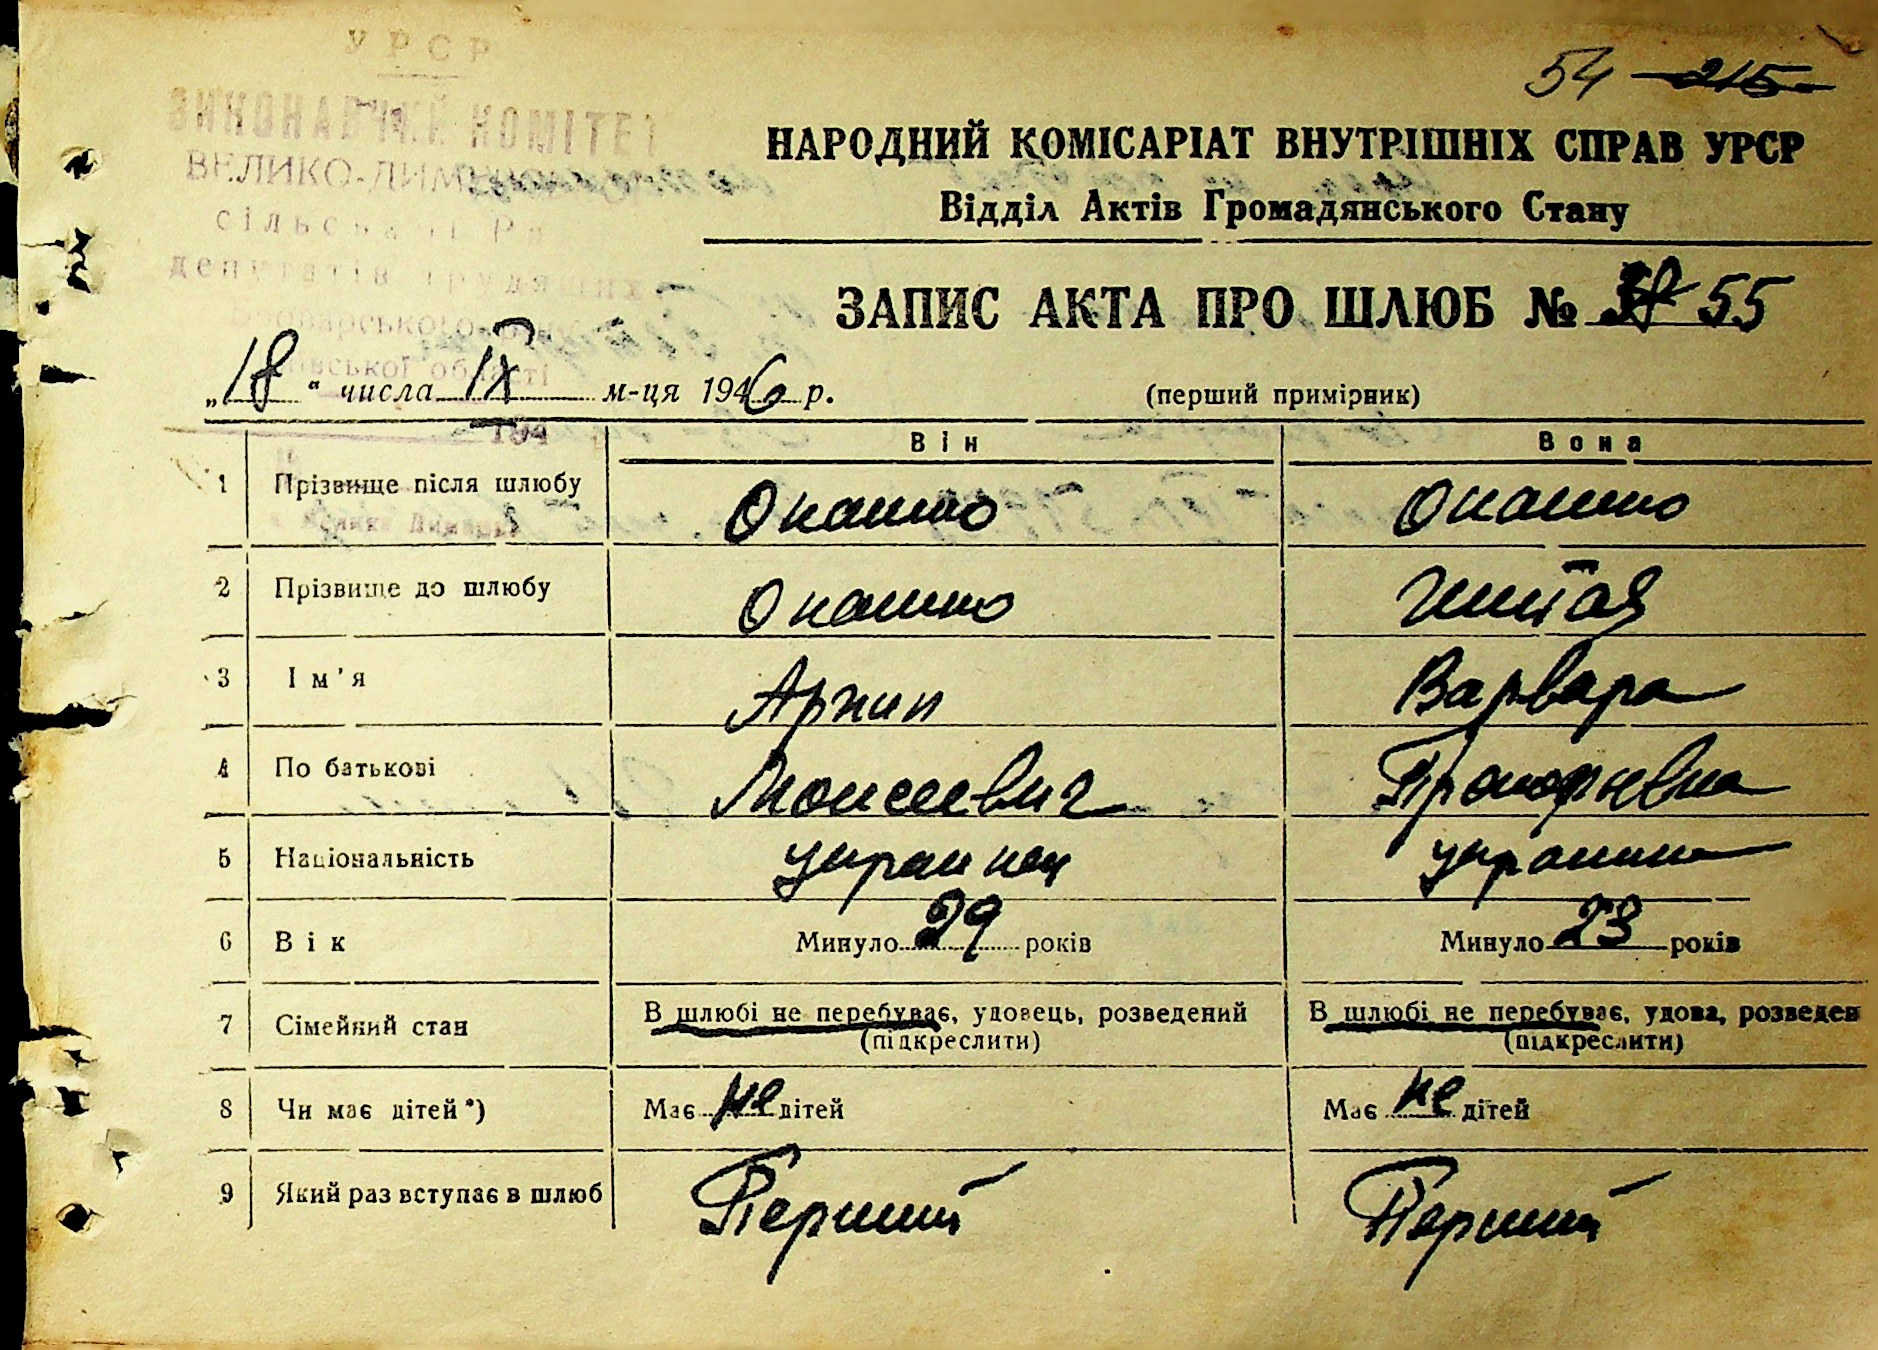 УРСР
ВИКОНАВЧИЙ КОМІТЕТ
ВЕЛИКО-ДИМ
сільської Ра
депутатів трудящих
Броварського
Київської області
194
54 215
НАРОДНИЙ КОМІСАРІАТ ВНУТРІШНІХ СПРАВ УРСР
Відділ Актів Громадянського Стану
ЗАПИС АКТА ПРО ШЛЮБ № 55
„18" числа IX м-ця 1946 р. (перший примірник)
Він Вона
1 Прізвище після шлюбу Окашко Окашко
2 Прізвище до шлюбу Окашко
3 Ім'я Архип Варвара
4 По батькові Моисеевич Прокофиевна
5 Національність украинец украинка
6 Вік Минуло 29 років Минуло 23 років
7 Сімейний стан В шлюбі не перебуває, удовець, розведений В шлюбі не перебуває, удова, розведен
(підкреслити) (підкреслити)
8 Чи має дітей*) Має не дітей Має не дітей
9 Який раз вступає в шлюб Перший Перший